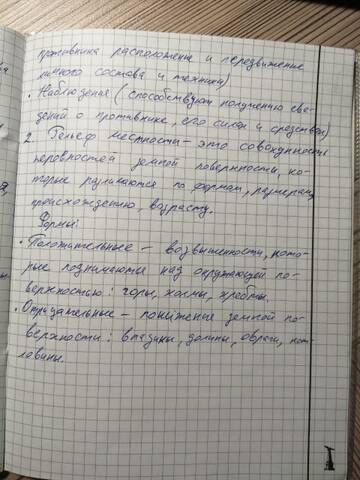 противника расположение и передвижение
личного состава и техники)
• Наблюдения (способствуют получению све-
дений о противнике, его силах и средствах)
2. Рельеф местности – это совокупность
неровностей земной поверхности, ко-
торые различаются по формам, размерам,
происхождению, возрасту.
Формы:
• Положительные – возвышенности, кото-
рые поднимаются над окружающей по-
верхностью: горы, холмы, хребты.
• Отрицательные – понижения земной по-
верхности: впадины, долины, овраги, кот-
ловины.